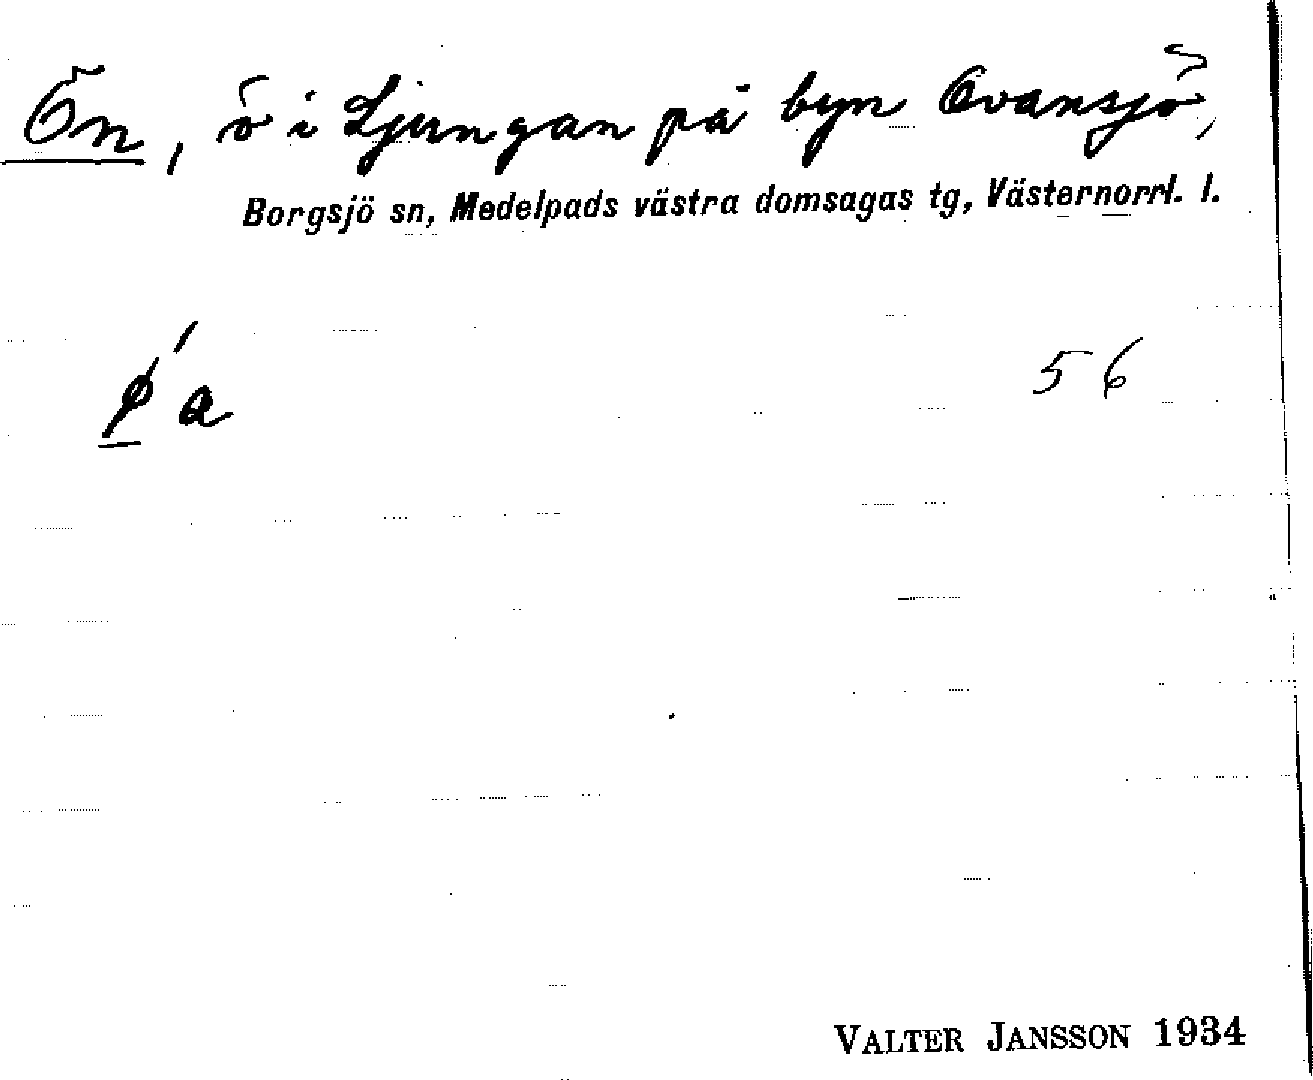 Ön, ö i Ljungan på byn Ovansjö,
Borgsjö sn, Medelpads västra domsagas tg, Västernorrl. l.
ø´a 56
VALTER JANSSON 1934